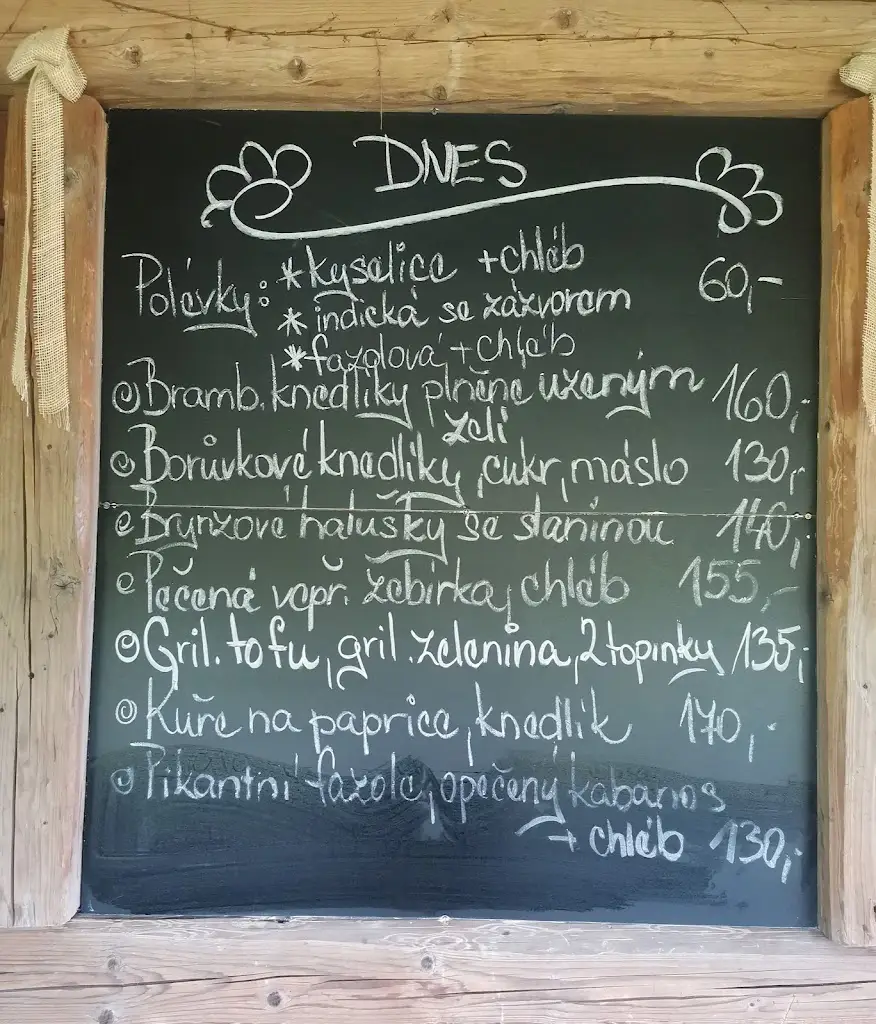 DNES
Polévky: * kyselice + chléb 60,-
* indická se zázvorem
* fazolová + chléb
Bramb. knedlíky plněné uzeným 160,-
zelí
Borůvkové knedlíky, cukr, máslo 130,-
Brynzové halušky se slaninou 140,-
Pečená vepř. žebírka, chléb 155,-
Gril. tofu, gril. zelenina, 2 topinky 135,-
Kuře na paprice, knedlík 170,-
Pikantní fazole, opečený kabanos
+ chléb 130,-